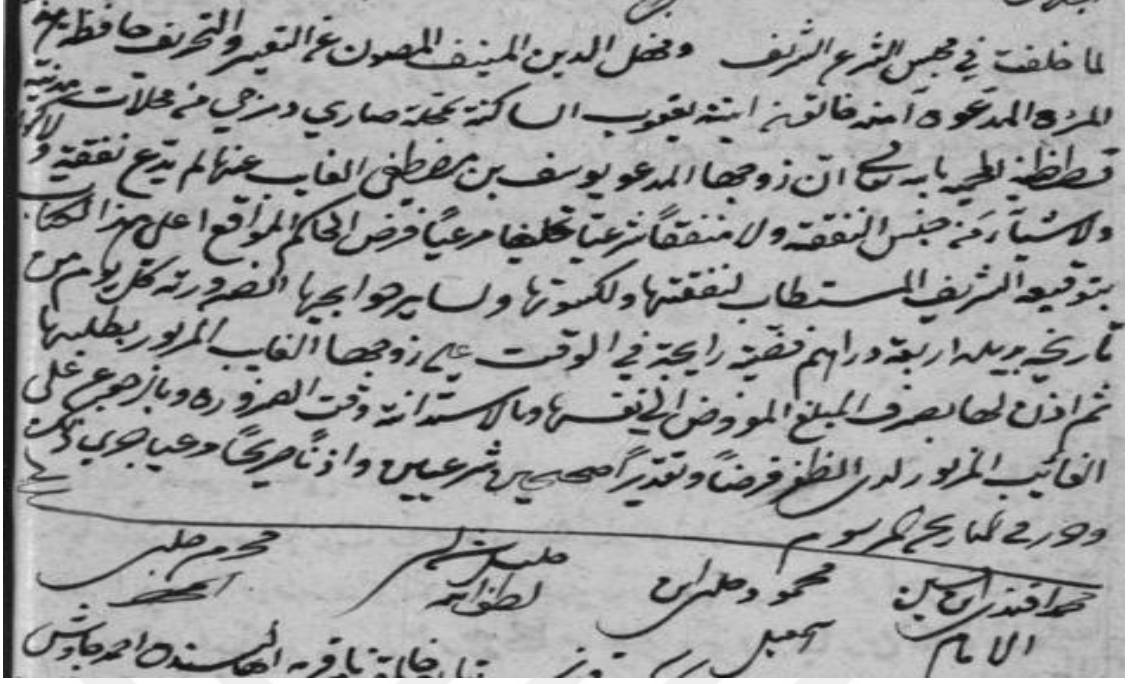 لما حلفت في مجلس الشرع الشريف ومحفل الدين المنيف المصون عن التغير والتحريف حافظة
المرءة المدعوة آمنه ابنة يعقوب الساكنة بمحلة صاري دمزجي من محلات مدينة
قسطنطينية المحمية بان زوجها المدعو يوسف بن مصطفى الغايب عنها لم يدع نفقة ولا
ولا شيئا من جنس النفقة ولا منفقا شرعيا تحليفا مرعيا فرض الحاكم الموقع اعلى هذا الكتاب
بتوقيعه الشريف المستطاب لنفقتها ولكسوتها ولساير حوايجها الضرورية كل يوم من
تاريخه اربعة دراهم فضية رايجة في الوقت على زوجها الغايب المزبور بطلبها
ثم اذن لها بصرف المبلغ المفروض الى نفسها وبالاستدانة وقت الضرورة وبالرجوع على
الغائب المزبور لدى الظفر فرضا وتقديرا صحيحين شرعيين واذنا صريحا مرعيا جرى ذلك
وحرر في التاريخ المرسوم
افندى ابن حسين الامام
محمود چلبى ابن اسمعيل
لطف الله
محرم چلبى
احمد چاوش